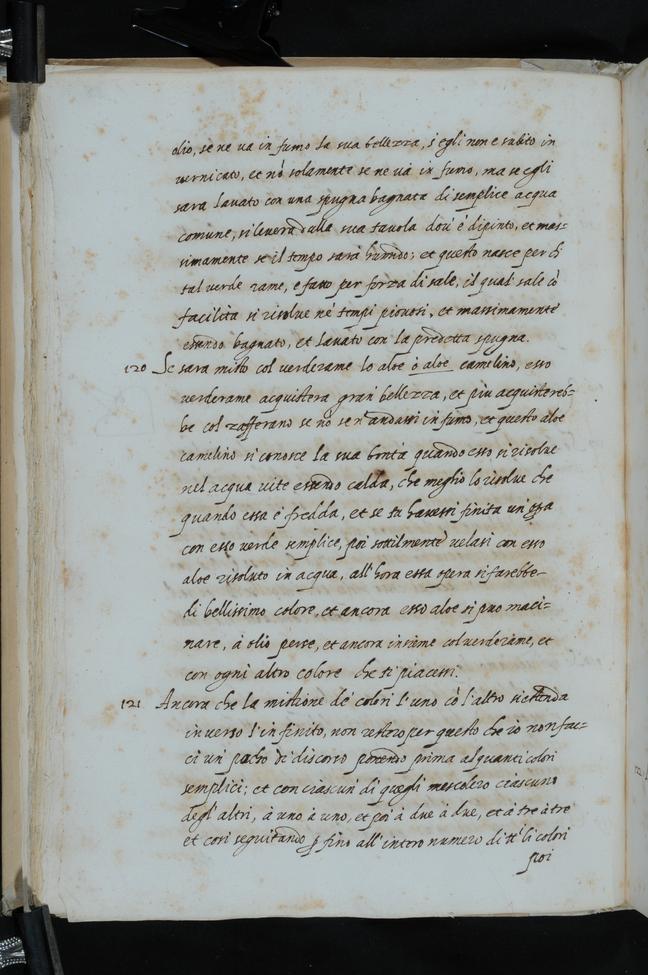 olio, se ne va in fumo la sua bellezza, s'egli non e subito in
vernicato, et nō solamente se ne va in fumo, ma se egli
sara lavato con una spugna bagnata di semplice acqua
comune, si levera dalla sua tavola dov'è dipinto, et mas=
simamente se il tempo sarà humido; et questo nasce per ch̄
tal verde rame, e fatto per forza di sale, il qual sale cō
facilità si risolve ne' tempi piovosi, et massimamente
essendo bagnato, et lavato con la predetta spugna.
120 Se sara misto col verderame lo aloe ò aloe camelino, esso
verderame acquistera gran bellezza, et più acquistereb=
be col zafferano se nō se n'andassi in fumo, et questo aloe
camelino si conosce la sua bontà quando esso si risolve
nel acqua vite essendo calda, che meglio lo risolve che
quando essa è fredda, et se tu havessi finita un'opa
con esso verde semplice, poi sottilmente velassi con esso
aloe risoluto in acqua, all'hora essa opera si farebbe
di bellissimo colore, et ancora esso aloe si puo maci=
nare, à olio perse, et ancora insieme col verderame, et
con ogni altro colore che ti piacessi.
121 Ancora che la mistione de' colori l'uno cō l'altro si estenda
in verso l'infinito, non restero per questo che io non fac=
ci un' pocho di discorso ponendo prima alquanti colori
semplici; et con ciascun' di quegli mescolero ciascuno
degl'altri, à uno à uno, et poi à due à due, et à tre à tre
et cosi seguitando p fino all'intero numero di tt' li colori
poi